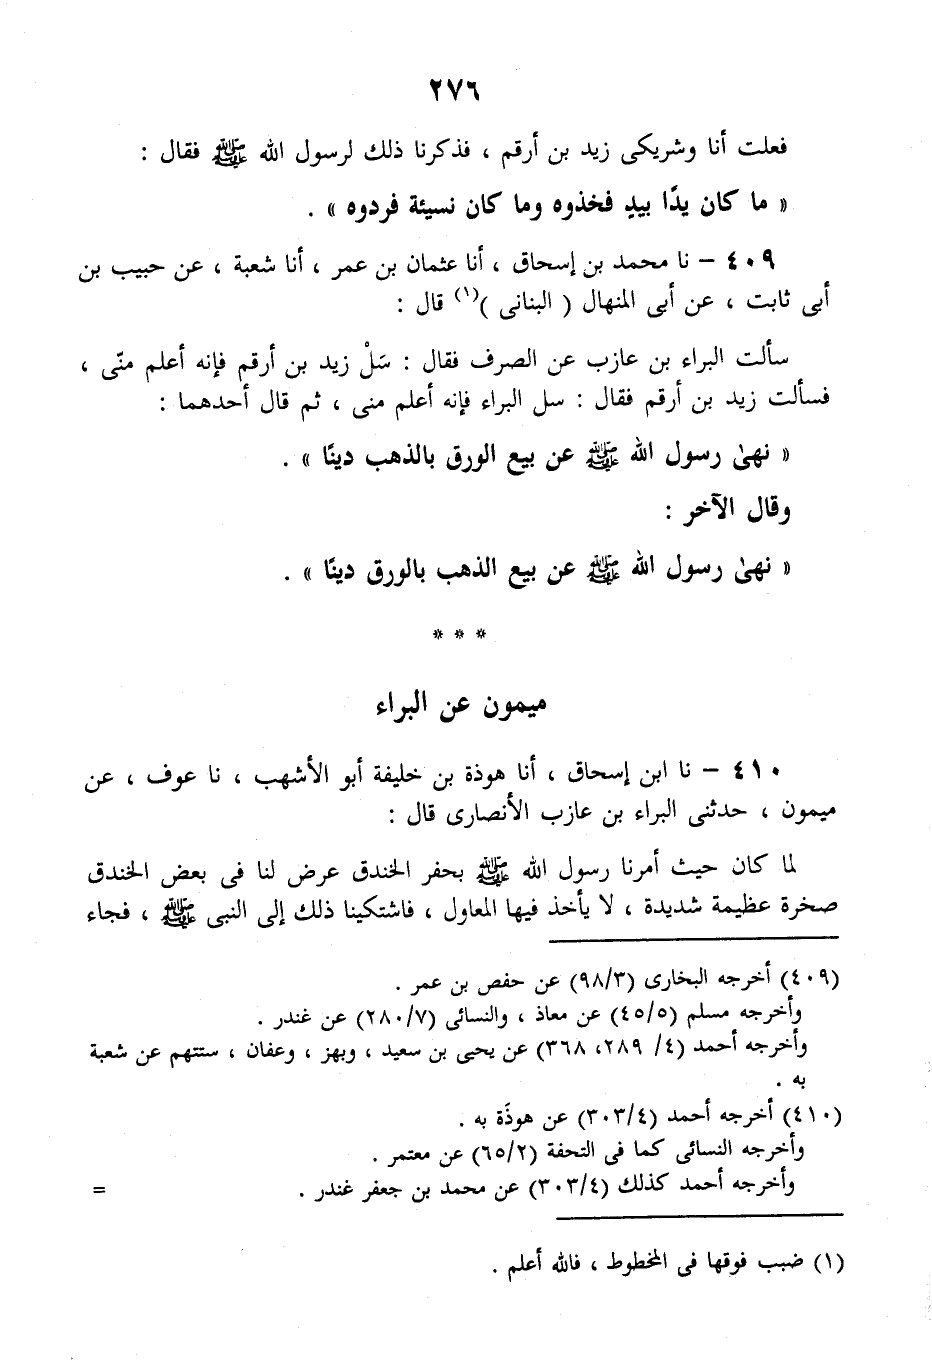 ٢٧٦
فعلت أنا وشريكى زيد بن أرقم ، فذكرنا ذلك لرسول الله ﷺ فقال :
« ما كان يدًا بيدٍ فخذوه وما كان نسيئة فردوه » .
٤٠٩ – نا محمد بن إسحاق ، أنا عثمان بن عمر ، أنا شعبة ، عن حبيب بن
أبى ثابت ، عن أبى المنهال ( البنانى )(١) قال :
سألت البراء بن عازب عن الصرف فقال : سَلْ زيد بن أرقم فإنه أعلم منّى ،
فسألت زيد بن أرقم فقال : سل البراء فإنه أعلم منى ، ثم قال أحدهما :
« نهىٰ رسول الله ﷺ عن بيع الورق بالذهب دينًا » .
وقال الآخر :
« نهىٰ رسول الله ﷺ عن بيع الذهب بالورق دينًا » .
* * *
ميمون عن البراء
٤١٠ – نا ابن إسحاق ، أنا هوذة بن خليفة أبو الأشهب ، نا عوف ، عن
ميمون ، حدثنى البراء بن عازب الأنصارى قال :
لما كان حيث أمرنا رسول الله ﷺ بحفر الخندق عرض لنا فى بعض الخندق
صخرة عظيمة شديدة ، لا يأخذ فيها المعاول ، فاشتكينا ذلك إلى النبى ﷺ ، فجاء
(٤٠٩) أخرجه البخارى (٩٨/٣) عن حفص بن عمر .
وأخرجه مسلم (٤٥/٥) عن معاذ ، والنسائى (٢٨٠/٧) عن غندر .
وأخرجه أحمد (٤/ ٢٨٩، ٣٦٨) عن يحيى بن سعيد ، وبهز ، وعفان ، ستتهم عن شعبة
به .
(٤١٠) أخرجه أحمد (٣٠٣/٤) عن هوذَة به .
وأخرجه النسائى كما فى التحفة (٦٥/٢) عن معتمر .
وأخرجه أحمد كذلك (٣٠٣/٤) عن محمد بن جعفر غندر . =
(١) ضبب فوقها فى المخطوط ، فالله أعلم .